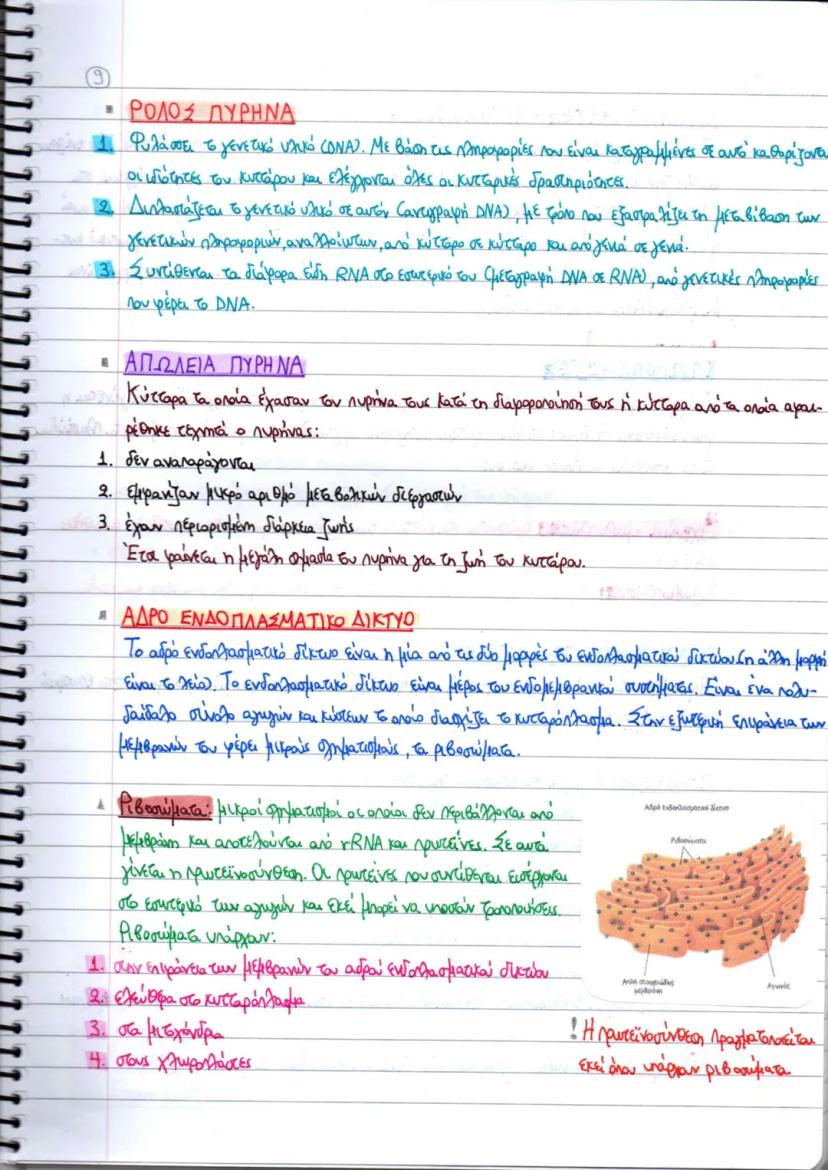 9
ΡΟΛΟΣ ΠΥΡΗΝΑ
1. Φυλάσσει το γενετικό υλικό (DNA). Με βάση τις πληροφορίες που είναι καταγραμμένες σε αυτό καθορίζονται
οι ιδιότητες του κυττάρου και ελέγχονται όλες οι κυτταρικές δραστηριότητες.
2. Διπλασιάζεται το γενετικό υλικό σε αυτόν (αντιγραφή DNA), με τρόπο που εξασφαλίζει τη μεταβίβαση των
γενετικών πληροφοριών, αναλλοίωτων, από κύτταρο σε κύτταρο και από γενιά σε γενιά.
3. Συντίθενται τα διάφορα είδη RNA στο εσωτερικό του (μεταγραφή DNA σε RNA), από γενετικές πληροφορίες
που φέρει το DNA.
ΑΠΩΛΕΙΑ ΠΥΡΗΝΑ
Κύτταρα τα οποία έχασαν τον πυρήνα τους κατά τη διαφοροποίησή τους ή κύτταρα από τα οποία αφαι-
ρέθηκε τεχνητά ο πυρήνας:
1. δεν αναπαράγονται
2. εμφανίζουν μικρό αριθμό μεταβολικών διεργασιών
3. έχουν περιορισμένη διάρκεια ζωής
Έτσι φαίνεται η μεγάλη σημασία του πυρήνα για τη ζωή του κυττάρου.
ΑΔΡΟ ΕΝΔΟΠΛΑΣΜΑΤΙΚΟ ΔΙΚΤΥΟ
Το αδρό ενδοπλασματικό δίκτυο είναι η μία από τις δύο μορφές του ενδοπλασματικού δικτύου (η άλλη μορφή
είναι το λείο). Το ενδοπλασματικό δίκτυο είναι μέρος του ενδομεμβρανικού συστήματος. Είναι ένα πολυ-
δαίδαλο σύνολο αγωγών και κύστεων το οποίο διασχίζει το κυτταρόπλασμα. Στην εξωτερική επιφάνεια των
μεμβρανών του φέρει μικρούς σχηματισμούς, τα ριβοσώματα.
Ριβοσώματα: μικροί σχηματισμοί οι οποίοι δεν περιβάλλονται από
μεμβράνη και αποτελούνται από rRNA και πρωτεΐνες. Σε αυτά
γίνεται η πρωτεϊνοσύνθεση. Οι πρωτεΐνες που συντίθενται εισέρχονται
στο εσωτερικό των αγωγών και εκεί μπορεί να υποστούν τροποποιήσεις.
Ριβοσώματα υπάρχουν:
1. στην επιφάνεια των μεμβρανών του αδρού ενδοπλασματικού δικτύου
2. ελεύθερα στο κυτταρόπλασμα
3. στα μιτοχόνδρια
4. στους χλωροπλάστες
Αδρό ενδοπλασματικό δίκτυο
Ριβοσώματα
Απλή στοιχειώδης
μεμβράνη
Αγωγός
! Η πρωτεϊνοσύνθεση πραγματοποιείται
εκεί όπου υπάρχουν ριβοσώματα